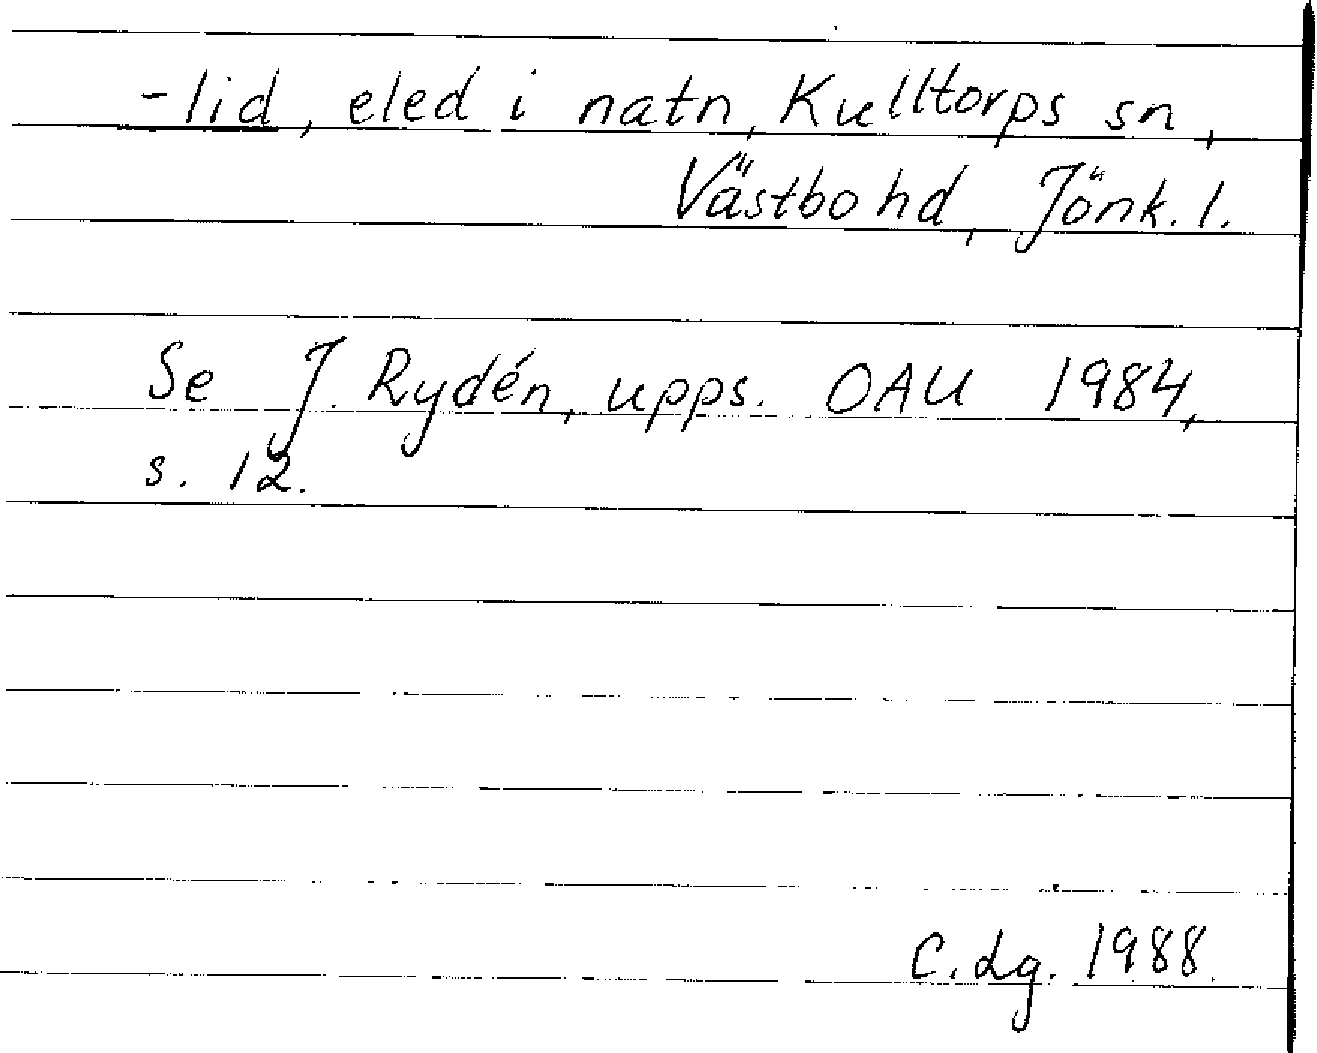 -lid, eled i natn, Kulltorps sn,
Västbo hd, Jönk. l.
Se J. Rydén, upps. OAU 1984,
s. 12.
C.dg. 1988.